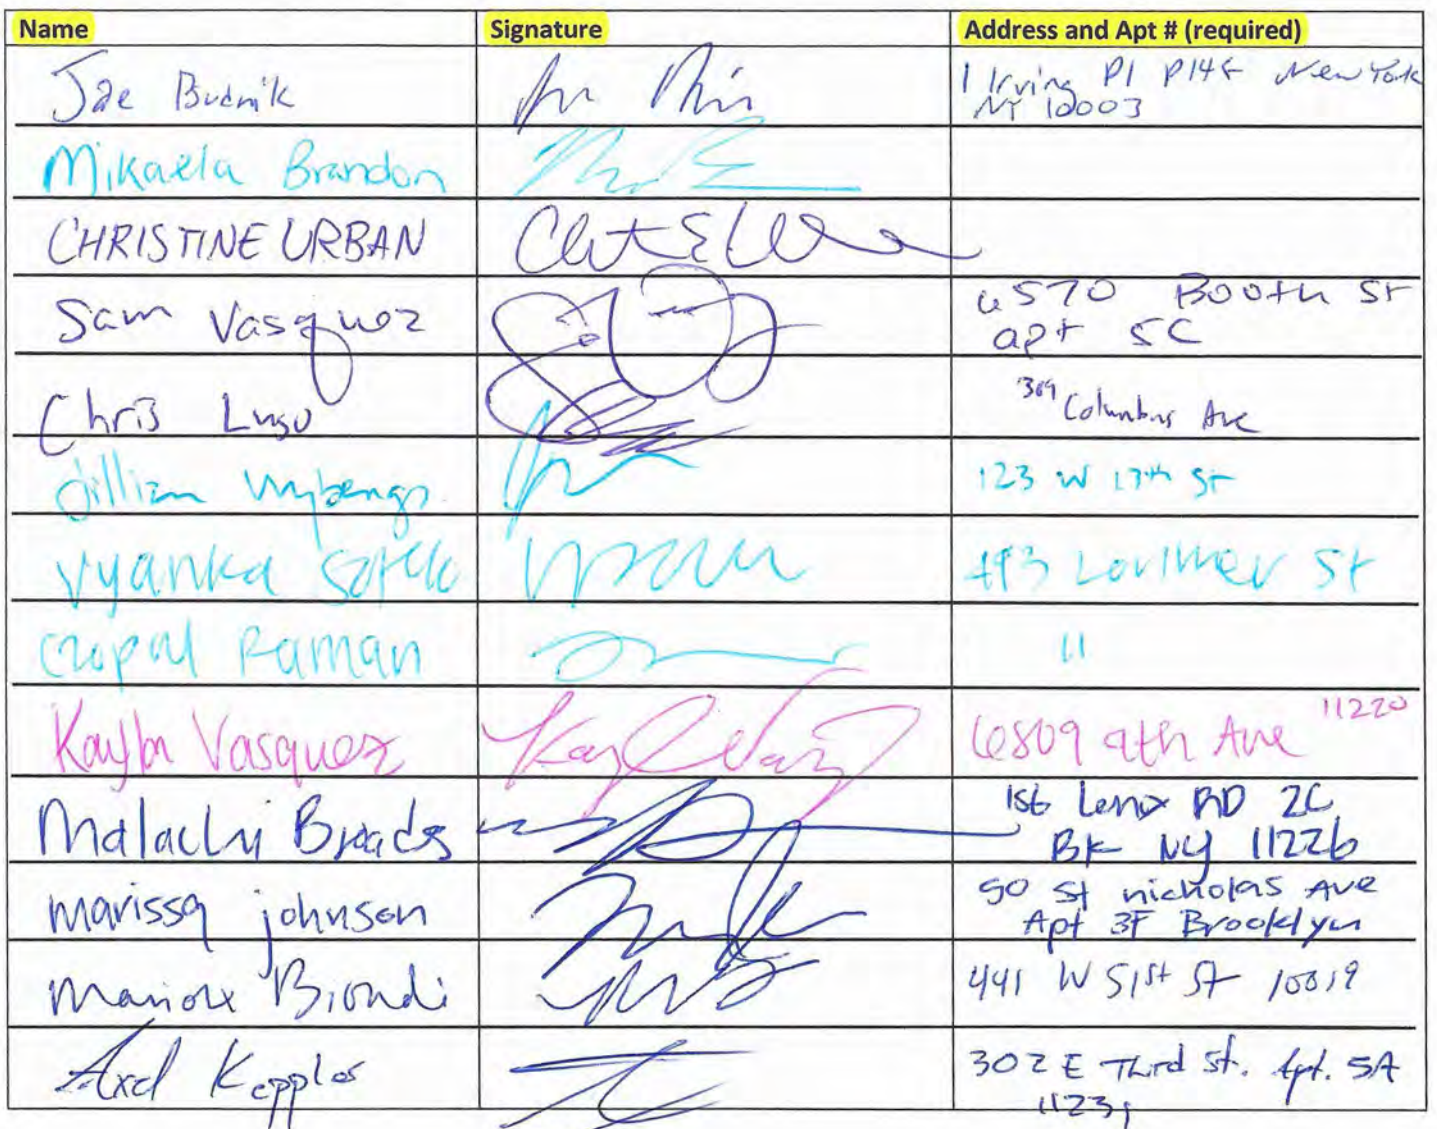 Name Signature Address and Apt # (required)
Joe Budnik 1 Irving Pl P14F New York
NY 10003
Mikaela Brandon
CHRISTINE URBAN
Sam Vasquez 6570 Booth St
apt 5C
Chris Lugo 309 Columbus Ave
Jillian 123 W 17th St
Vyanka Sotelo 493 Lorimer St
Gopal Raman 11
Kayla Vasquez 6809 9th Ave 11220
Malachi 156 Lenox RD 2C
BK NY 11226
marissa johnson 50 St nicholas Ave
Apt 3F Brooklyn
Biondi 441 W 51st St 10019
Axel Keppler 302 E Third St. Apt. 5A